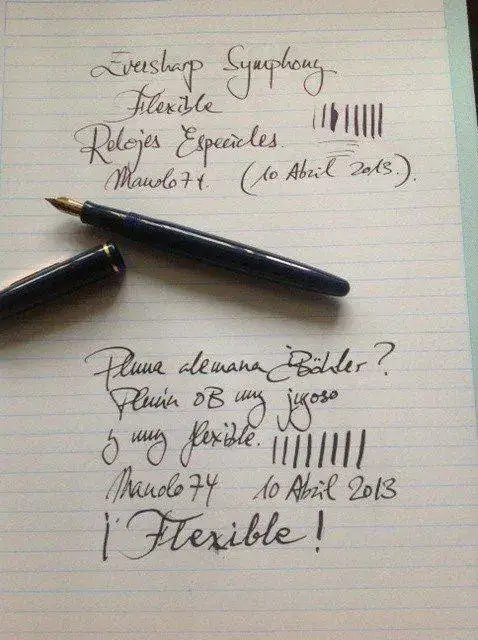 Eversharp Symphony
Flexible
Relojes Especiales.
Manolo74. (10 Abril 2013.).
Pluma alemana ¿Böhler?
Plumín OB muy jugoso
y muy flexible.
Manolo74 10 Abril 2013
¡Flexible!